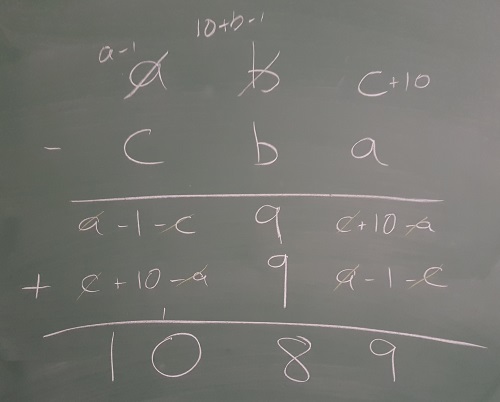 a-1 10+b-1
a b c+10
- c b a
a-1-c 9 c+10-a
+ c+10-a 9 a-1-c
1
1 0 8 9